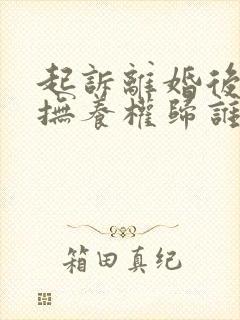 起訴離婚後
撫養權歸誰
箱田真纪